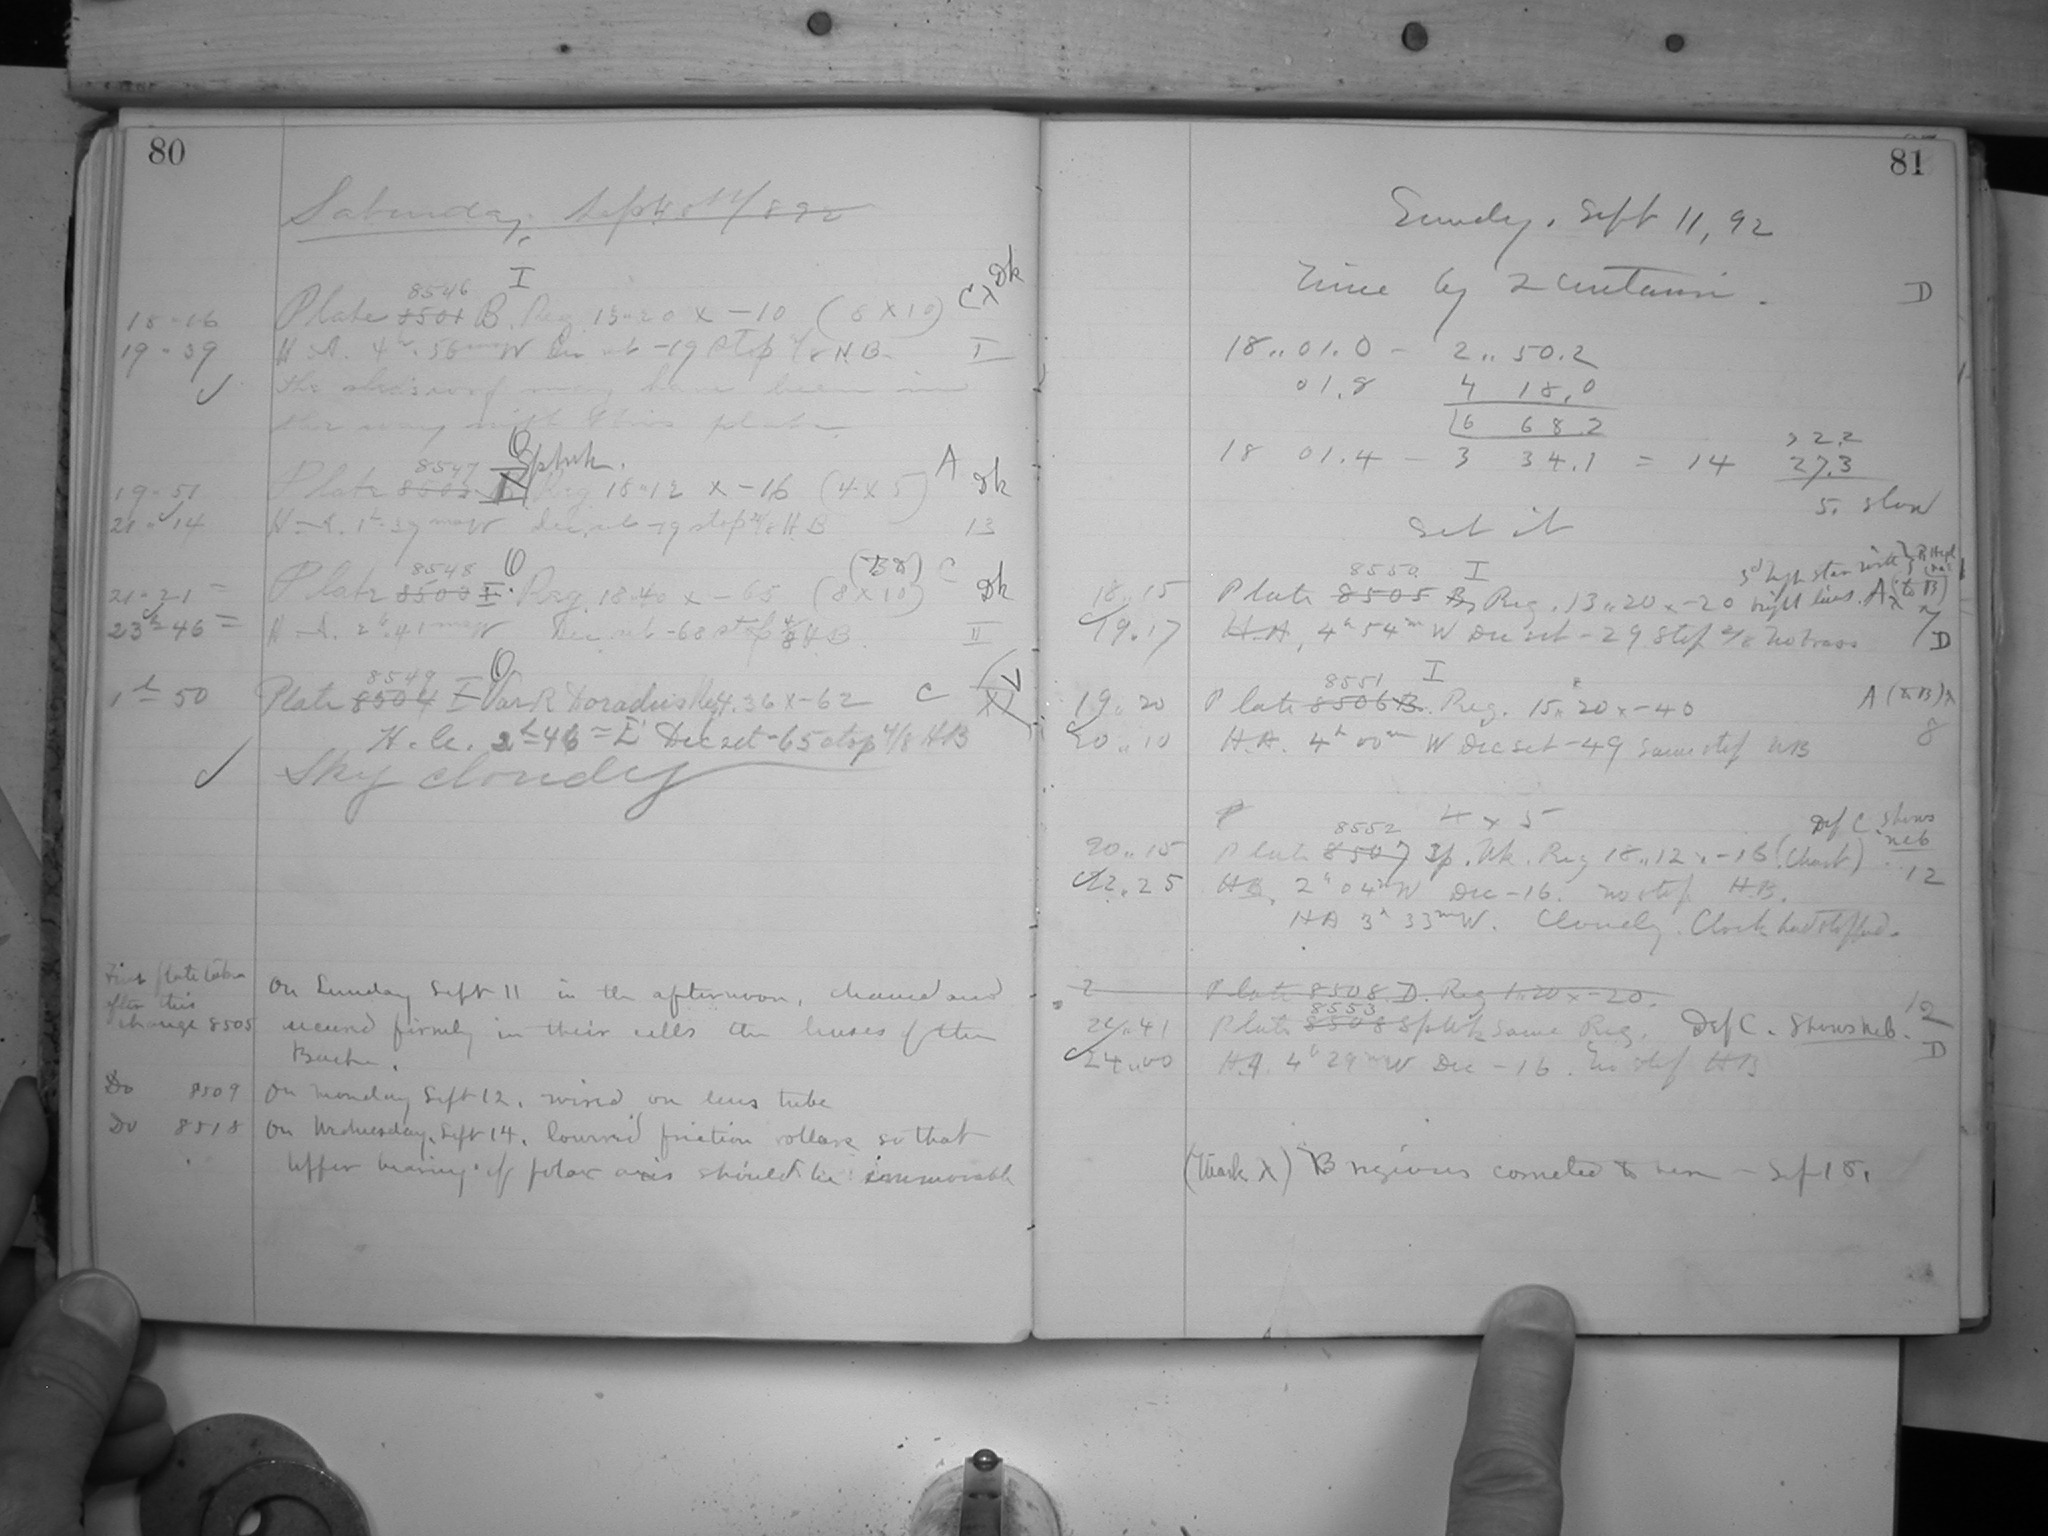 80
Saturday, Sept 1892
8546 I
18 - 16 Plate 8501 B. Reg. 13 - 20 x -10 (8 x 10) C x Dk
19 - 39 H.A. 4h. 56m W Dec set -19 stop 4/8 H.B. I
✓ The may have been in
the way with this plate.
8547 O Sp. wk. A
19 - 51 Plate 8502 Reg 18 - 12 x -16 (4 x 5) Dk
21 - 14 H.A. 1h. 39m W Dec. set -19 stop 4/8 H B 13
8548 O (B 8) C
21 - 21 Plate 8503 I. Reg. 18.40 x -65 (8 x 10) Dk
23h 46m H.A. 2h. 41m W Dec. set -68 stop 4/8 H.B. II
8549 O
1h 50 Plate 8504 I Var R Doradus Reg 4.36 x -62 C
H.A. 2h 46m E Dec set -65 stop 4/8 HB
✓ Sky cloudy
First plate taken On Sunday Sept 11 in the afternoon, cleaned and
after this
change 8505 secured firmly in their cells the lenses of the
Bache.
Do 8509 On Monday Sept 12. wired on lens tube
Do 8518 On Wednesday. Sept 14. lowered friction rollers so that
upper bearing of polar axis should be immovable
81
Sunday. Sept 11, 92
Time by 2 Centauri. D
18 .. 01.0 - 2 .. 50.2
01.8 4 18.0
6 68.2
22.2
18 01.4 - 3 34.1 = 14 27.3
5. slow
Set it
8550 I 3d type star with
18 .. 15 Plate 8505 B, Reg. 13 .. 20 x -20 bright lines. A x (to B) 7
19 .. 17 H.A, 4h 54m W Dec set -29 Stop 4/8 No brass D
8551 I
19 .. 20 Plate 8506 B. Reg. 15 .. 20 x -40 A (to B) x
20 .. 10 H.A. 4h 00m W Dec set -49 same stop HB 8
4 x 5 Def C. Shows
8552 neb
20 .. 15 Plate 8507 Sp. Wk. Reg 18 .. 12 x -16 (Chart) 12
22 .. 25 HA, 2h 04m W Dec -16. no stop HB.
HA 3h 33m W. Cloudy. Clock had stopped.
2 Plate 8508. D. Reg 1 .. 20 x -20.
8553 12
22 .. 41 Plate 8508 Sp Wk Same Reg. Def C. Shows neb.
24 .. 00 HA. 4h 29m W Dec -16. No stop HB D
(Mark x) B regions corrected to here - Sep 18.